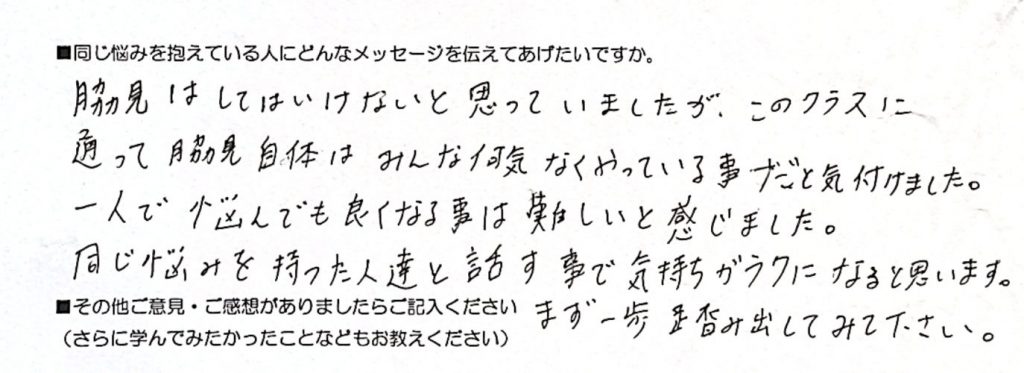 ■同じ悩みを抱えている人にどんなメッセージを伝えてあげたいですか。
脇見はしてはいけないと思っていましたが、このクラスに
通って脇見自体はみんな何気なくやっている事だと気付けました。
一人で悩んでも良くなる事は難しいと感じました。
同じ悩みを持った人達と話す事で気持ちがラクになると思います。
■その他ご意見・ご感想がありましたらご記入ください
まず一歩踏み出してみて下さい。
（さらに学んでみたかったことなどもお教えください）